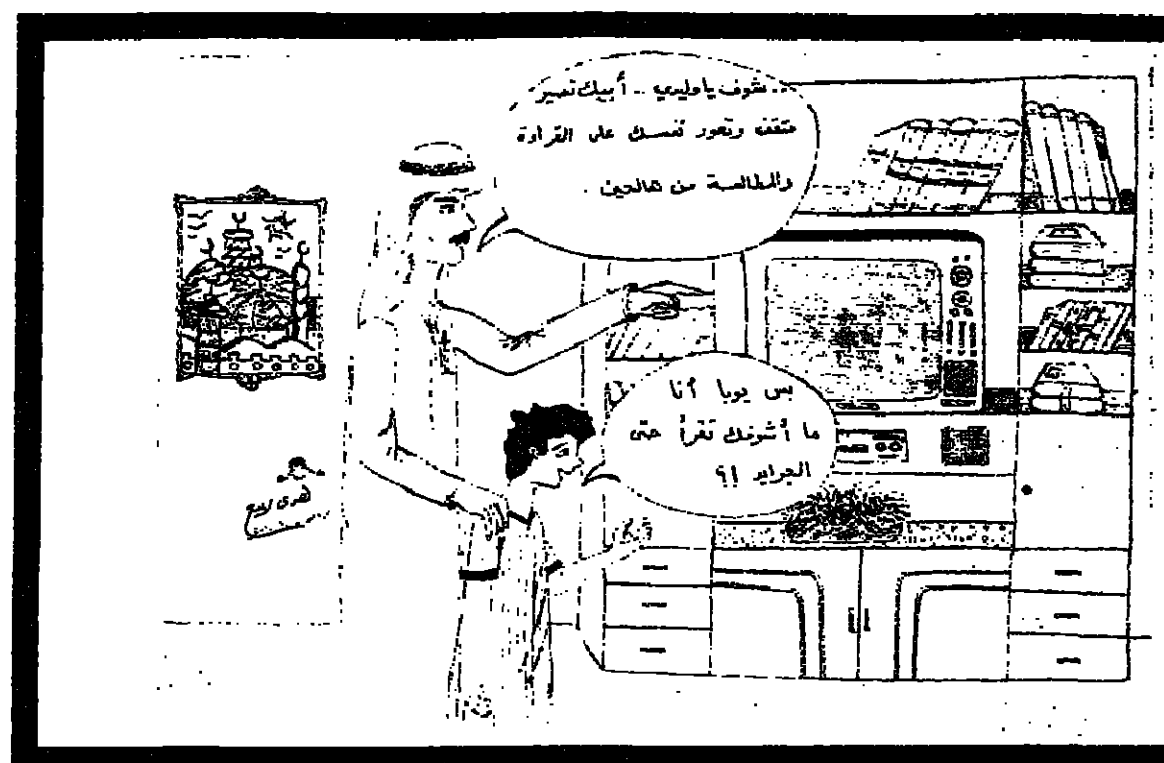 .. شوف ياوليدي .. أبيك تصير
مثقف وتعود نفسك على القراءة
والمطالعة من هالحين .
بس يوبا أنا
ما أشوفك تقرأ حتى
الجرايد ؟!